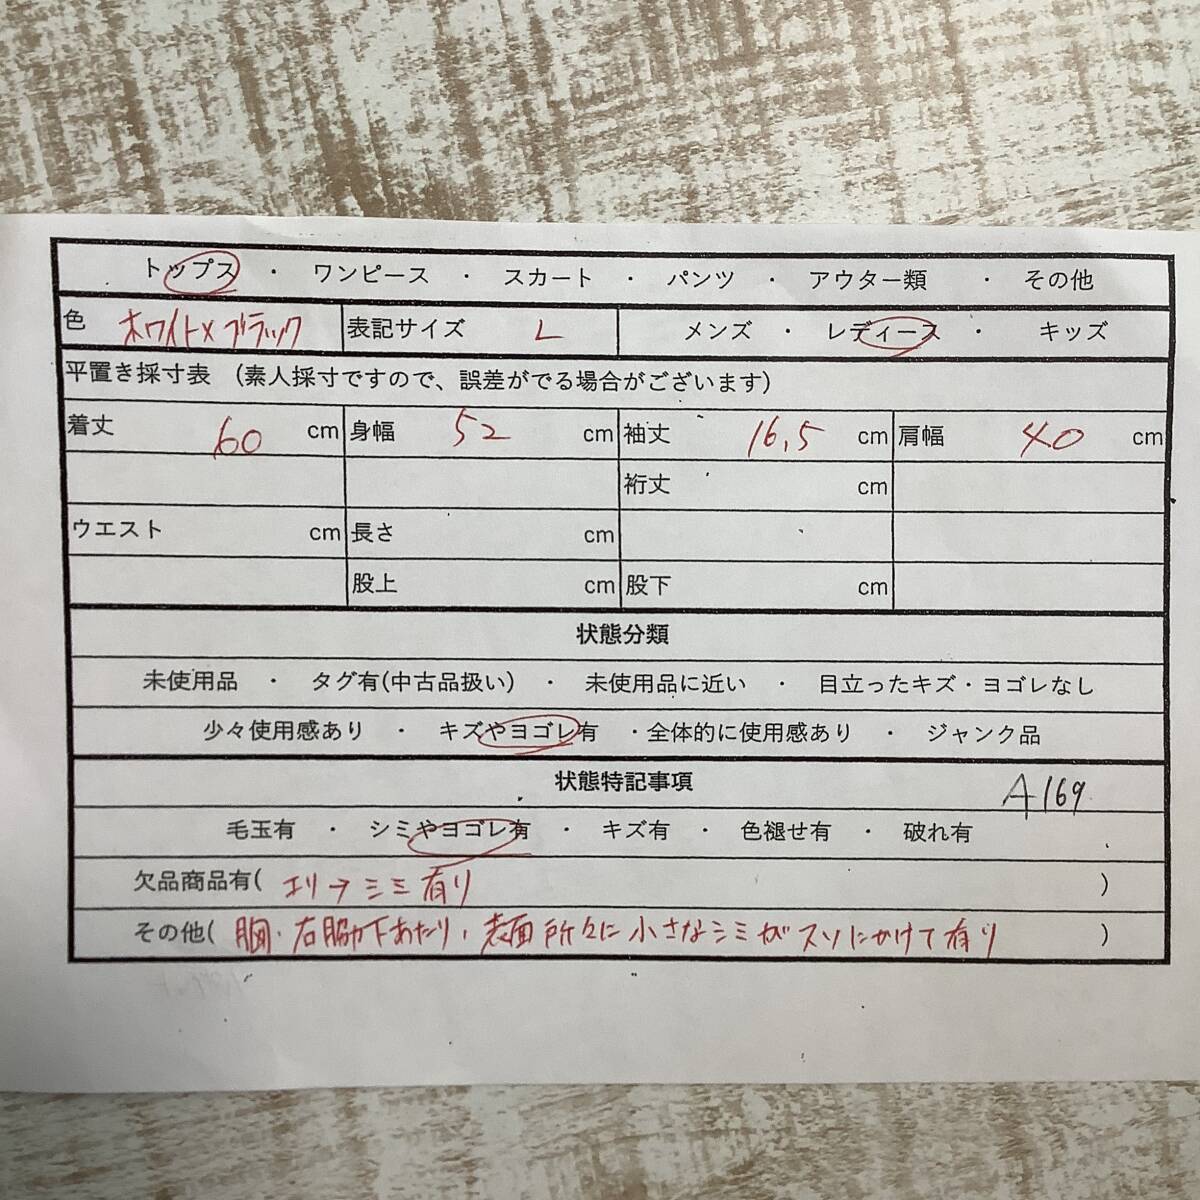 トップス ・ ワンピース ・ スカート ・ パンツ ・ アウター類 ・ その他
色 ホワイト×ブラック 表記サイズ L メンズ ・ レディース ・ キッズ
平置き採寸表 (素人採寸ですので、誤差がでる場合がございます)
着丈 60 cm 身幅 52 cm 袖丈 16.5 cm 肩幅 40 cm
裄丈 cm
ウエスト cm 長さ cm
股上 cm 股下 cm
状態分類
未使用品 ・ タグ有(中古品扱い) ・ 未使用品に近い ・ 目立ったキズ・ヨゴレなし
少々使用感あり ・ キズやヨゴレ有 ・全体的に使用感あり ・ ジャンク品
状態特記事項 A169
毛玉有 ・ シミやヨゴレ有 ・ キズ有 ・ 色褪せ有 ・ 破れ有
欠品商品有( エリ→シミ有り )
その他( 胸・右脇下あたり、表面所々に小さなシミがスソにかけて有り )